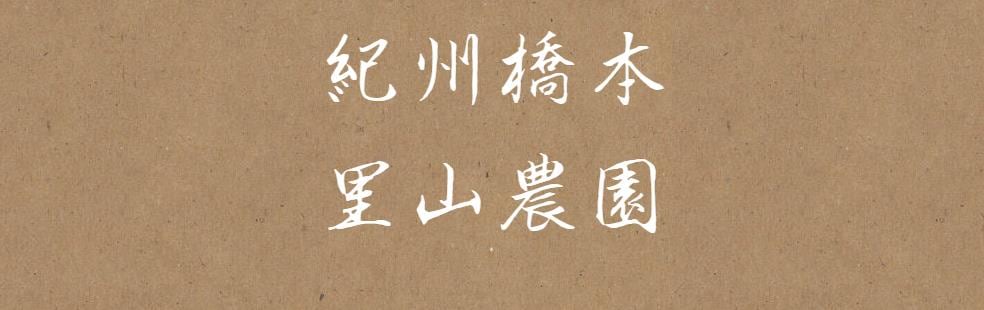 紀州橋本
里山農園